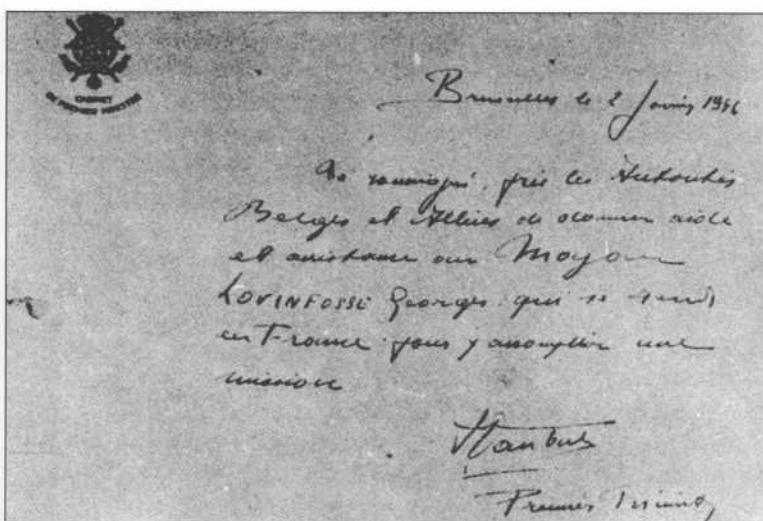 CABINET
DU PREMIER MINISTRE
Bruxelles le 2 Janvier 19
Le soussigné, prie les Autorités
Belges et Alliées de donner aide
et assistance au Major
LOVINFOSSE Georges qui se rend
en France pour y accomplir une
mission
Premier Ministre